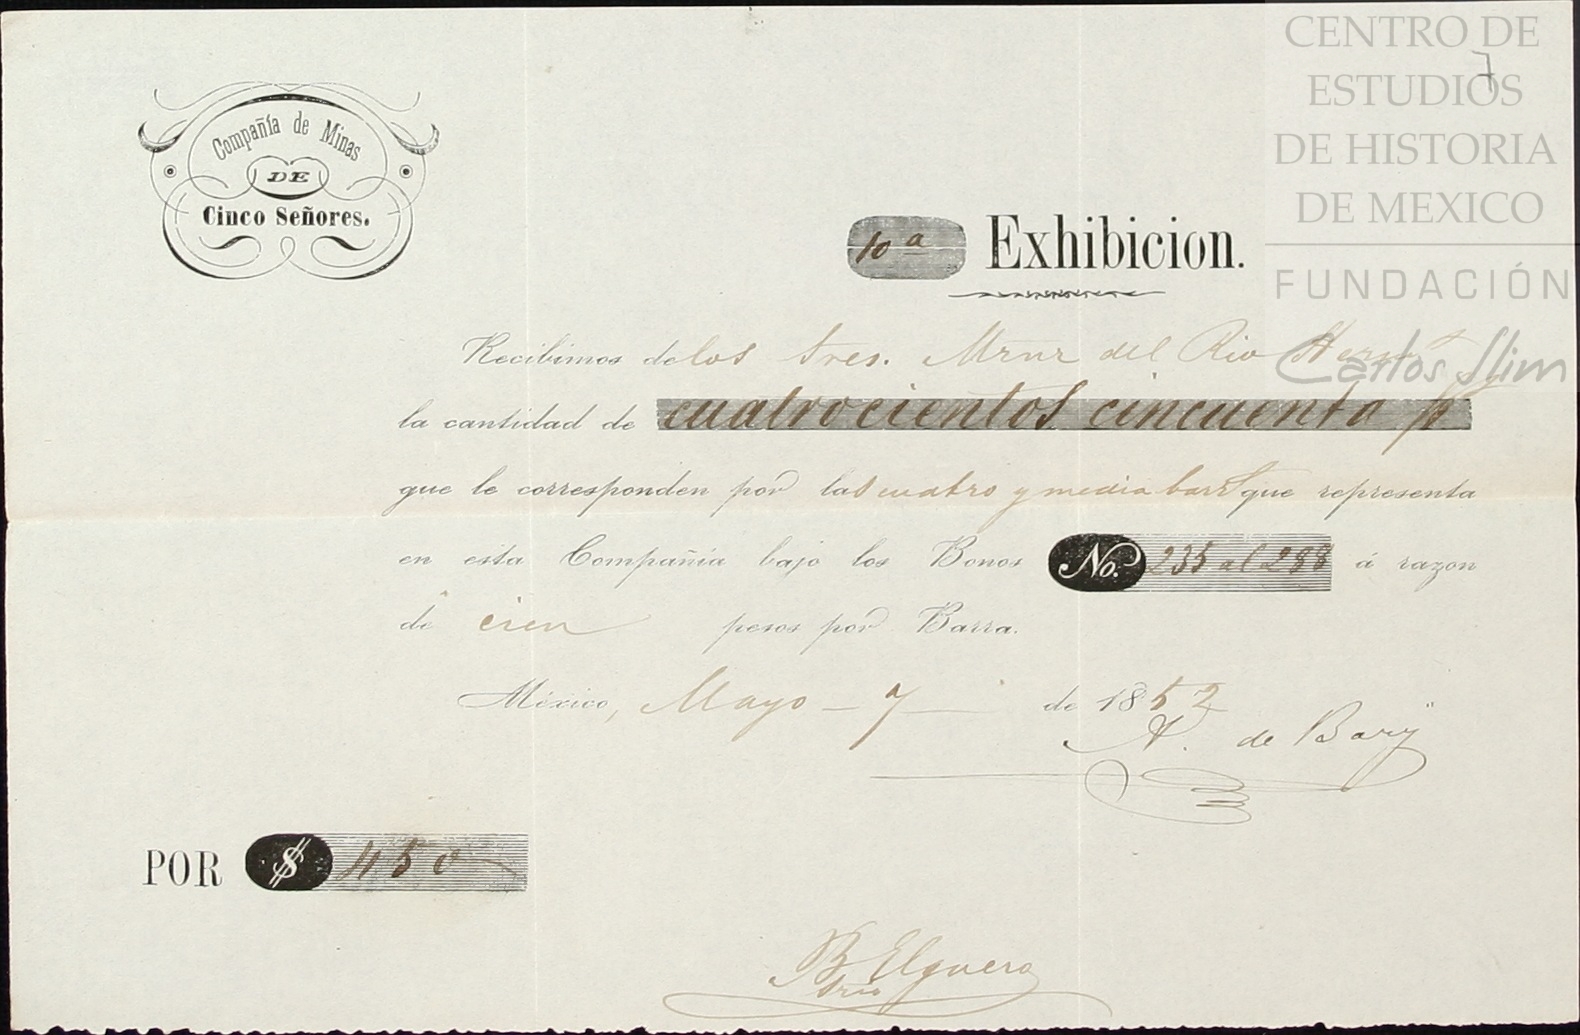 CENTRO DE
ESTUDIOS
DE HISTORIA
DE MEXICO
FUNDACIÓN
Carlos Slim
7
Compañía de Minas
DE
Cinco Señores.
10ª Exhibicion.
Recibimos de los Sres. Mrnz del Rio Herms
la cantidad de cuatrocientos cincuenta p
que le corresponden por las cuatro y media barrs que representa
en esta Compañia bajo los Bonos No. 235 al 288 á razon
de cien pesos por Barra.
México, Mayo - 7 de 1852
A. de Bary
POR $ 450
B Elguero
Srio